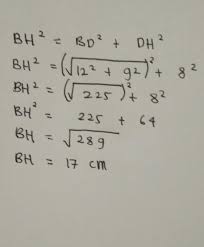 BH² = BD² + DH²
BH² = (√12² + 9²)² + 8²
BH² = (√225)² + 8²
BH² = 225 + 64
BH = √289
BH = 17 cm